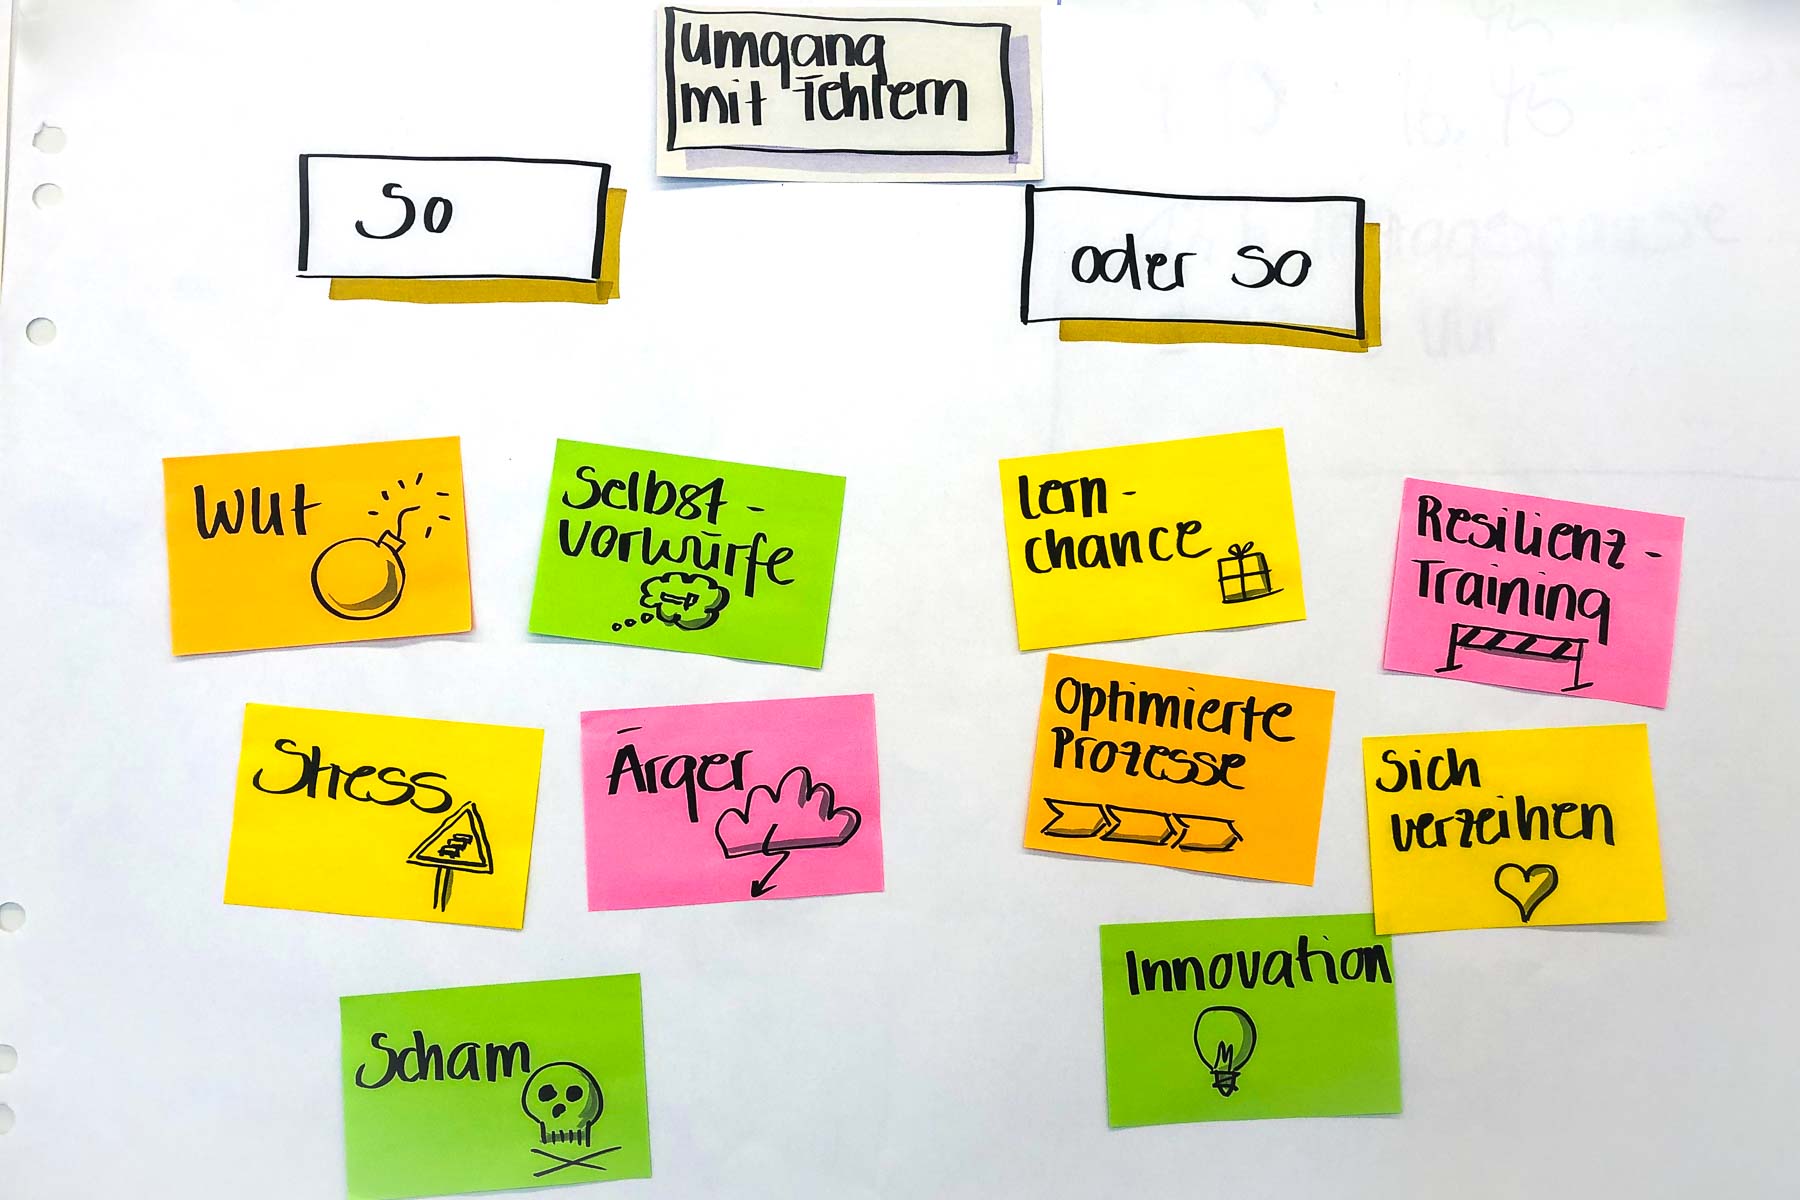 Umgang
mit Fehlern
So
oder so
Wut
Selbst-
vorwürfe
Stress
Ärger
Scham
Lern-
chance
Resilienz-
Training
Optimierte
Prozesse
Sich
verzeihen
Innovation